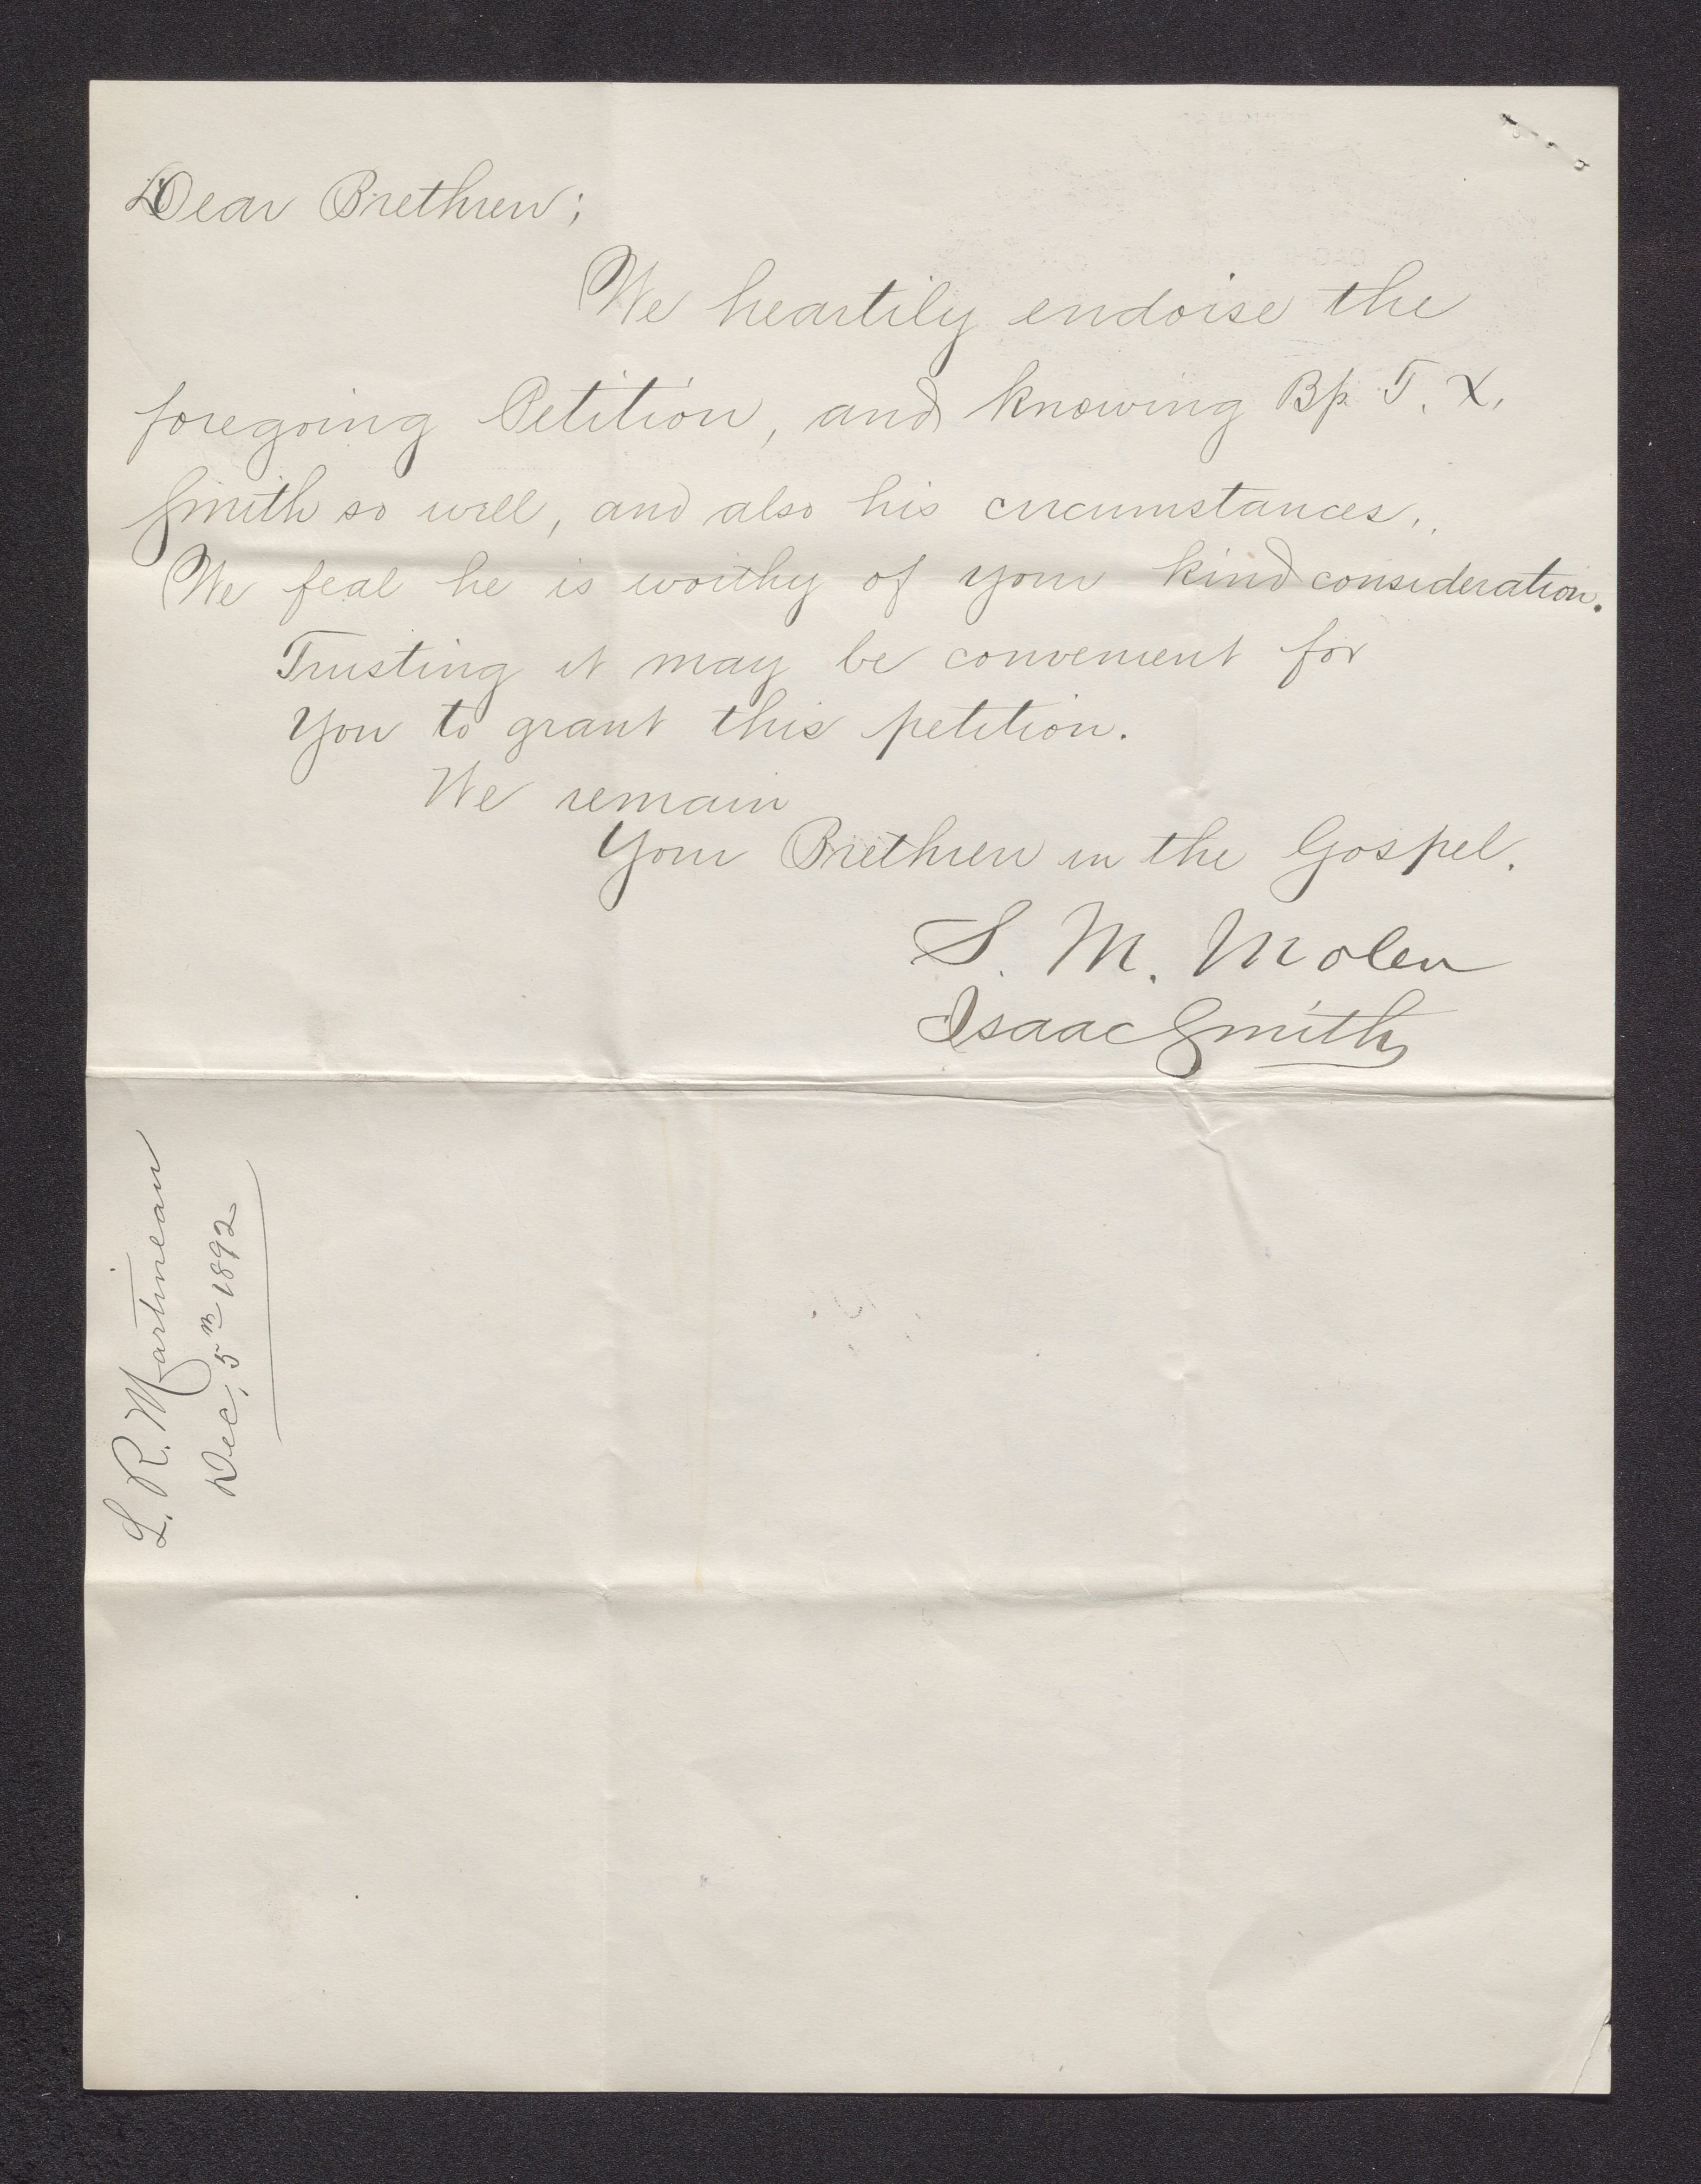 Dear Brethren;
We heartily endorse the
foregoing Petition, and knowing Bp. T. X.
Smith so well, and also his circumstances..
We feal he is worthy of your kind consideration.
Trusting it may be convenient for
You to grant this petition.
We remain
Your Brethren in the Gospel.
S. M. Molen
Isaac Smith
L. R. Martineau
Dec, 5th 1892